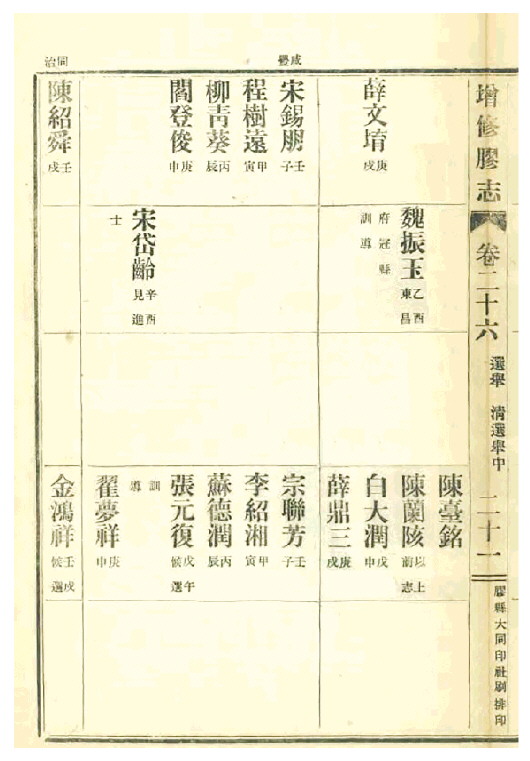 增修膠志
卷二十六
選舉 清選舉中
二十一
膠縣大同印社刷排印
咸豐
同治
薛文堉 庚戌
宋錫朋 壬子
程樹遠 甲寅
柳青葵 丙辰
閻登俊 庚申
陳紹舜 壬戌
魏振玉 乙酉東昌
府冠縣
訓導
宋岱齡 辛酉見進
士
陳臺銘
陳蘭陔 以上前志
白大潤 戊申
薛鼎三 庚戌
宗聯芳 壬子
李紹湘 甲寅
蘇德潤 丙辰
張元復 戊午候選
訓導
翟夢祥 庚申
金鴻祥 壬戌候選